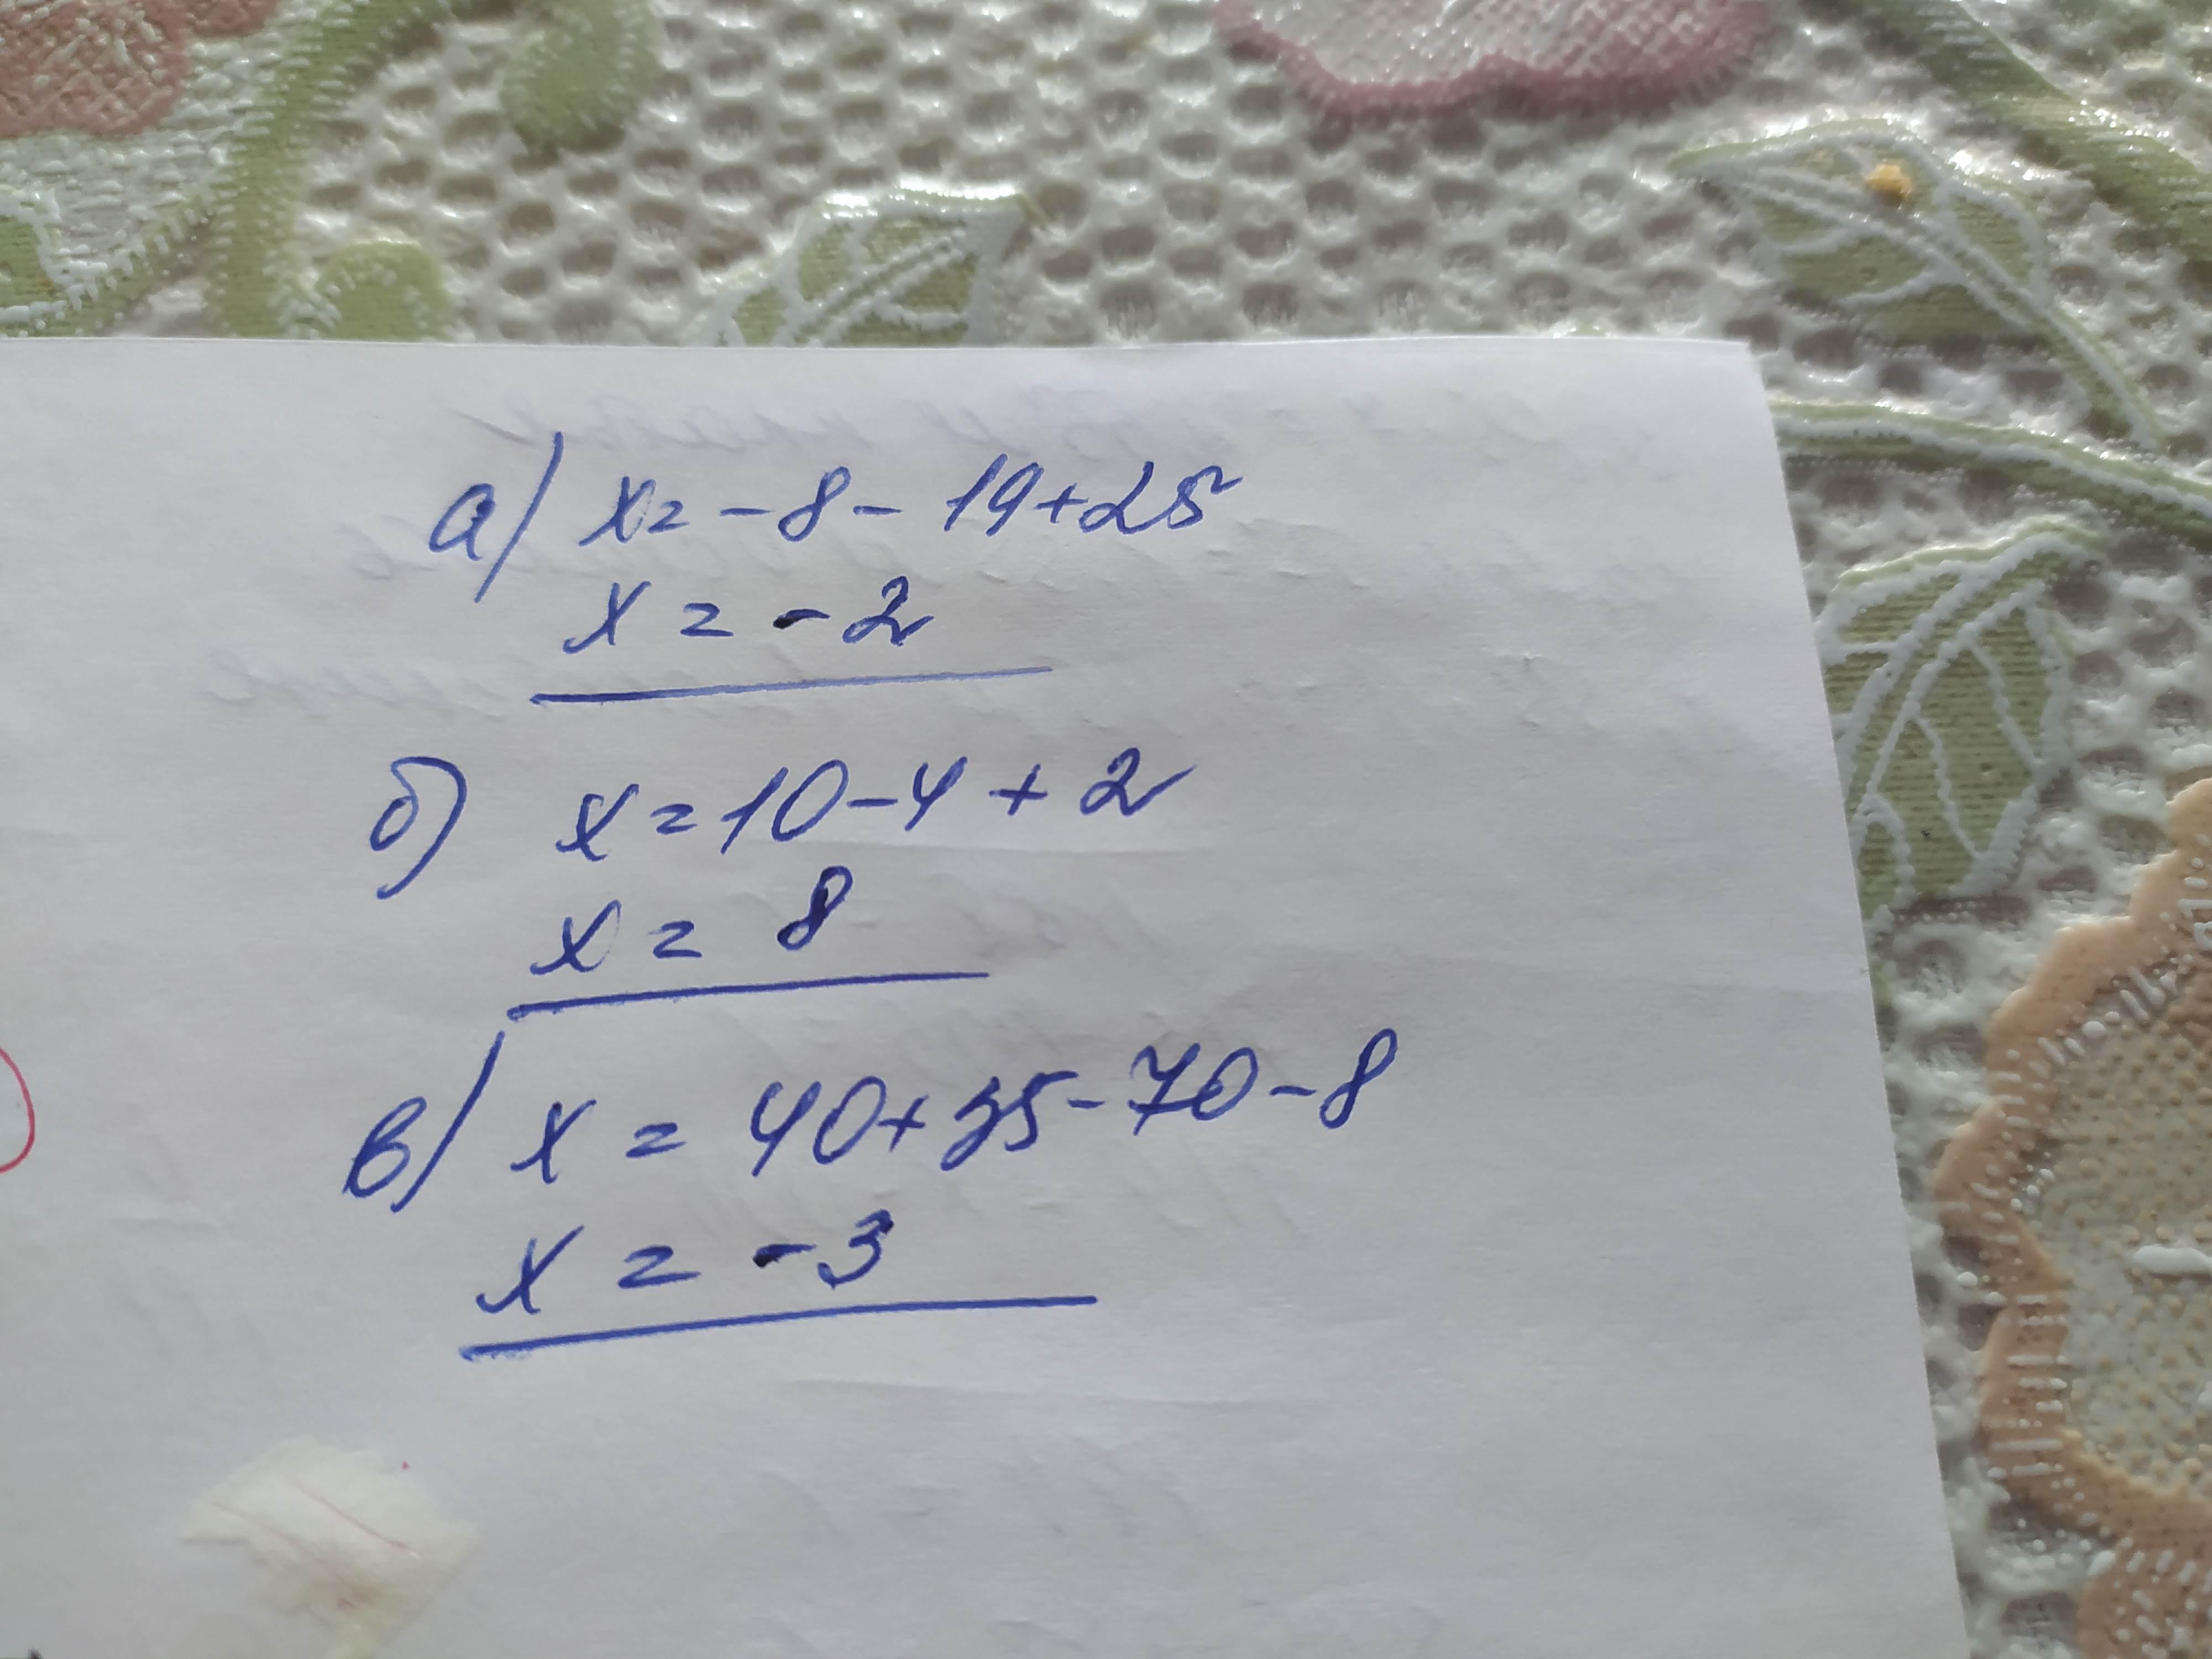 а) x = -8 - 19 + 25
x = -2
б) x = 10 - 4 + 2
x = 8
в) x = 40 + 35 - 70 - 8
x = -3